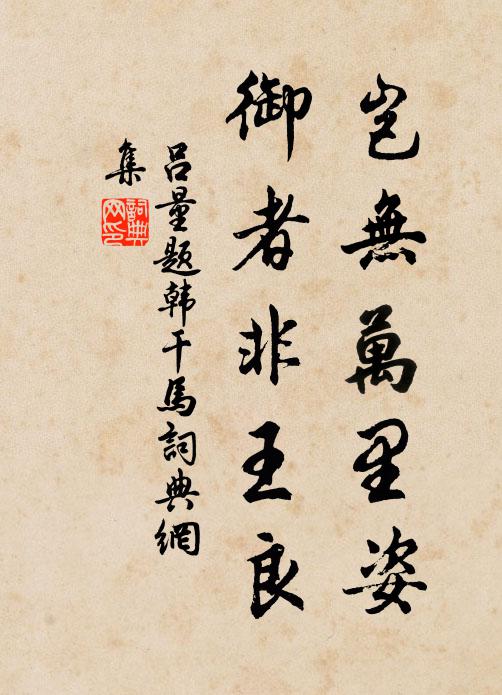 豈無萬里姿
御者非王良
吕量题韩干馬詞典網
集
詞典
网印